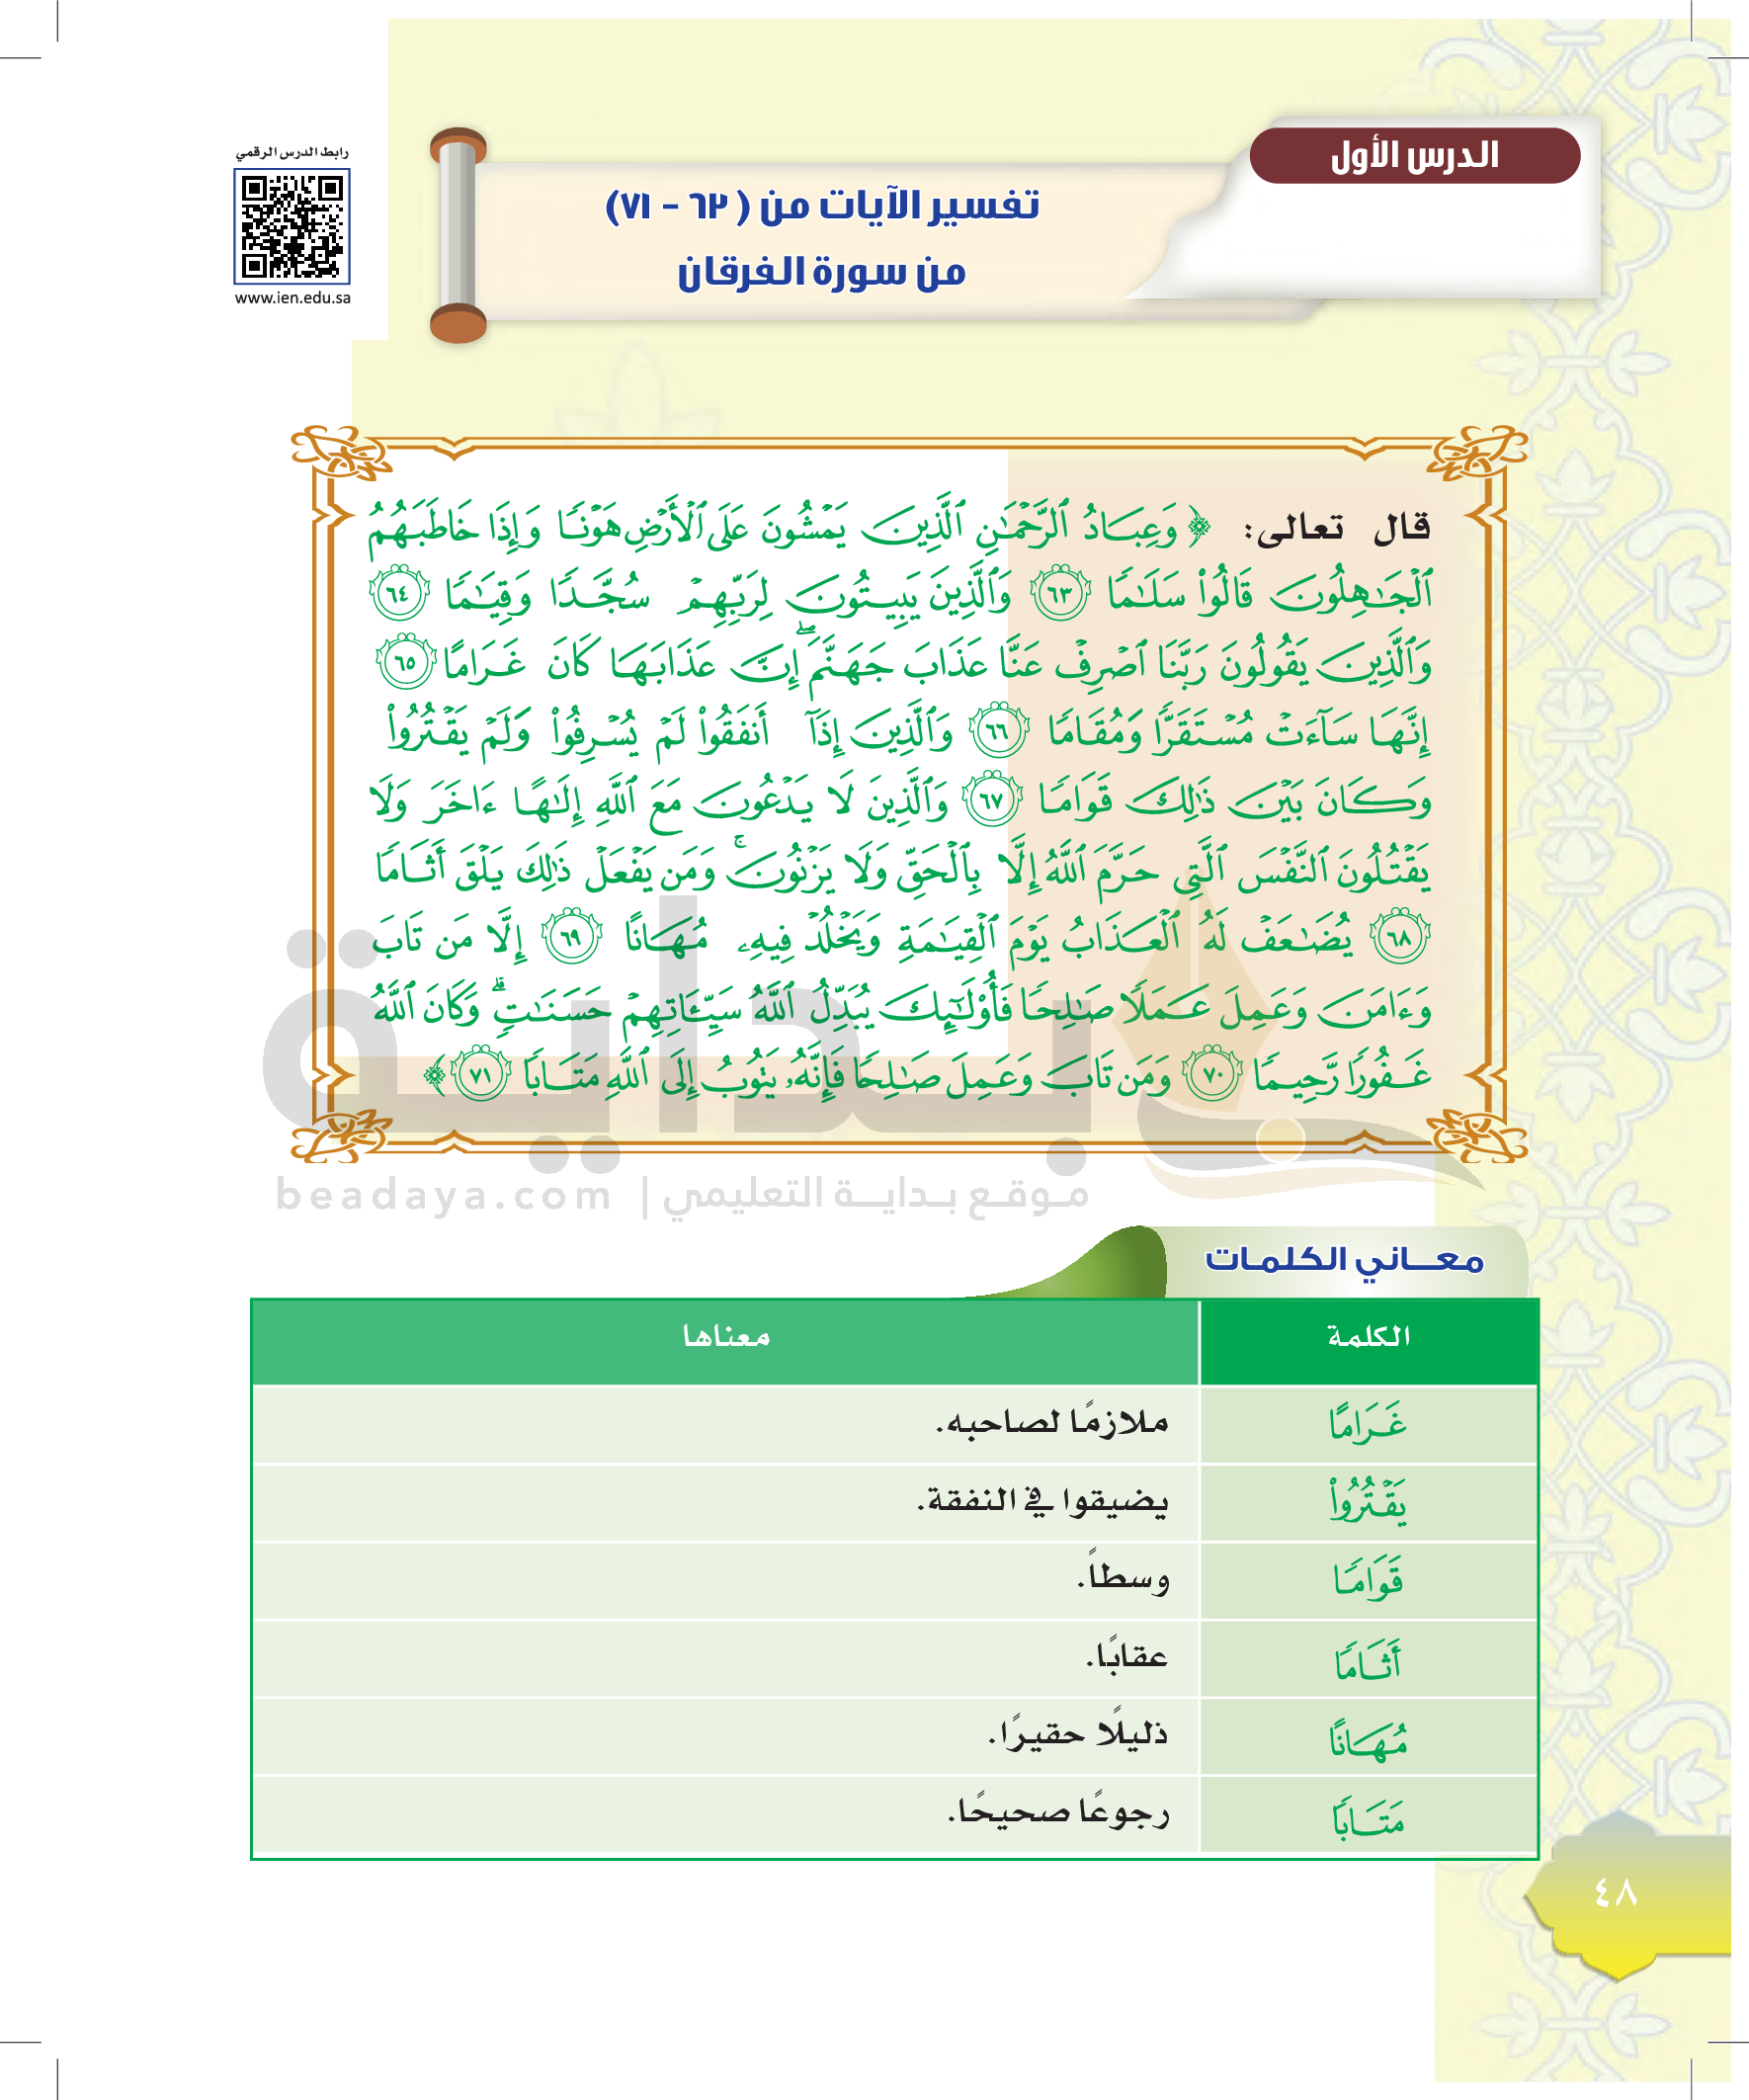 الدرس الأول
رابط الدرس الرقمي
www.ien.edu.sa
تفسير الآيات من (٦٣ - ٧١)
من سورة الفرقان
قال تعالى: ﴿ وَعِبَادُ ٱلرَّحْمَٰنِ ٱلَّذِينَ يَمْشُونَ عَلَى ٱلْأَرْضِ هَوْنًا وَإِذَا خَاطَبَهُمُ
ٱلْجَٰهِلُونَ قَالُوا۟ سَلَٰمًا ٦٣ وَٱلَّذِينَ يَبِيتُونَ لِرَبِّهِمْ سُجَّدًا وَقِيَٰمًا ٦٤
وَٱلَّذِينَ يَقُولُونَ رَبَّنَا ٱصْرِفْ عَنَّا عَذَابَ جَهَنَّمَ ۖ إِنَّ عَذَابَهَا كَانَ غَرَامًا ٦٥
إِنَّهَا سَآءَتْ مُسْتَقَرًّا وَمُقَامًا ٦٦ وَٱلَّذِينَ إِذَآ أَنفَقُوا۟ لَمْ يُسْرِفُوا۟ وَلَمْ يَقْتُرُوا۟
وَكَانَ بَيْنَ ذَٰلِكَ قَوَامًا ٦٧ وَٱلَّذِينَ لَا يَدْعُونَ مَعَ ٱللَّهِ إِلَٰهًا ءَاخَرَ وَلَا
يَقْتُلُونَ ٱلنَّفْسَ ٱلَّتِي حَرَّمَ ٱللَّهُ إِلَّا بِٱلْحَقِّ وَلَا يَزْنُونَ ۚ وَمَن يَفْعَلْ ذَٰلِكَ يَلْقَ أَثَامًا
٦٨ يُضَٰعَفْ لَهُ ٱلْعَذَابُ يَوْمَ ٱلْقِيَٰمَةِ وَيَخْلُدْ فِيهِۦ مُهَانًا ٦٩ إِلَّا مَن تَابَ
وَءَامَنَ وَعَمِلَ عَمَلًا صَٰلِحًا فَأُو۟لَٰٓئِكَ يُبَدِّلُ ٱللَّهُ سَيِّـَٔاتِهِمْ حَسَنَٰتٍ ۗ وَكَانَ ٱللَّهُ
غَفُورًا رَّحِيمًا ٧٠ وَمَن تَابَ وَعَمِلَ صَٰلِحًا فَإِنَّهُۥ يَتُوبُ إِلَى ٱللَّهِ مَتَابًا ٧١ ﴾
بداية
موقع بداية التعليمي | beadaya.com
معاني الكلمات
الكلمة معناها
غَرَامًا ملازمًا لصاحبه.
يَقْتُرُوا۟ يضيقوا في النفقة.
قَوَامًا وسطاً.
أَثَامًا عقابًا.
مُهَانًا ذليلًا حقيرًا.
مَتَابًا رجوعًا صحيحًا.
٤٨